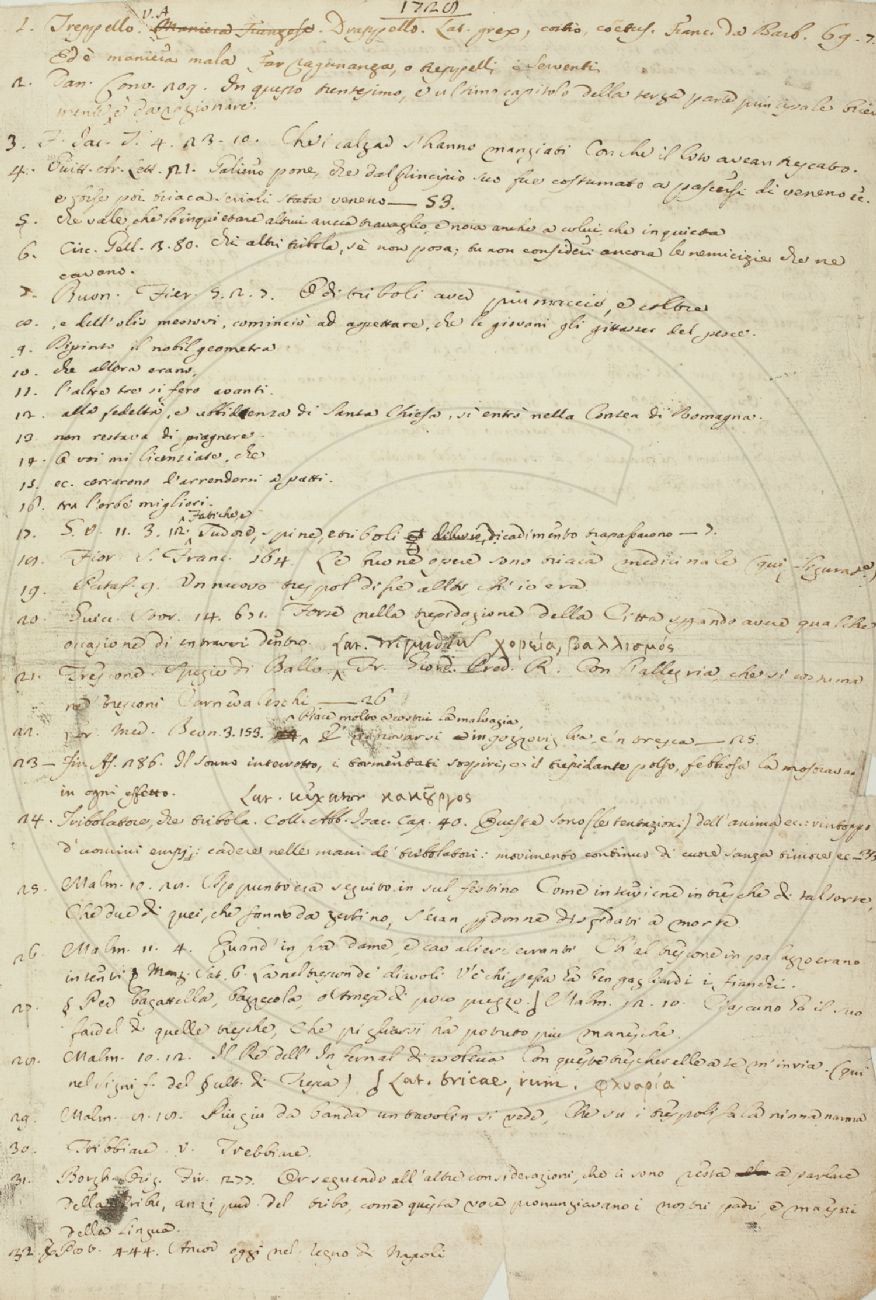 1728
1. Treppello. V. A. Maniera Franzese. Drappello. Lat. grex, coetus. Franc. da Barb. 69. 7.
Ed è maniera mala Far ragunanza, o treppelli i serventi
2. Dan. Conv. 209. In questo trentesimo, e ultimo capitolo della terza parte
ragionare.
3. 4. 23. 10. Che i calzar s'hanno mangiati Con che il loto avean
4. Guitt. Ar. Lett. 21. Galieno pone, che dal principio suo fue costumato a pascersi di veneno &c.
e forse poi triaca stata veneno — 53.
5. che vale, che lo inquietare altrui arreca travaglio, e noia anche a colui che inquieta
6. Circ. Gell. 3. 80. chi altri tribola, sè non posa; tu non consideri ancora le nemicizie che ne
cavano.
7. Buon. Fier. 5. 2. 7. E di triboli avea piumaccio, e coltre
8. , e dell'olio messovi, cominciò ad aspettare, che le giovani gli gittasser del pesce.
9. Dipinto il nobil geometra
10. che allora erano,
11. l'altre tre si fero avanti.
12. alla fedeltà, e ubbidenza di Santa Chiesa, si entrò nella Contea di Romagna.
13. non restava di piagnere.
14. E voi mi licenziate, che
15. ec. cercarono d'arrendersi a patti.
16. tra l'orbe migliori.
17. S. V. 11. 3. 12. Fatiche, e Sudore, spine, e triboli diluvio, dicadimento trapassarono — 7.
18. Fior. S. Franc. 164. Le buone opere sono triaca medicinale (qui figurat.e)
19. Pataf. 9. Un nuovo trespol di fie altr, ch'io era
20. Guicc. Stor. 14. 691. Forse nella trepidazione della Città sperando avere qualche
occasione di entrarvi dentro. Lat. tripudium χορεία, βαλλισμός
21. Trescone. Spezie di Ballo. Fr. Giord. Pred. R. Con l'allegria, che si costuma
ne' tresconi Carnevaleschi — 26
22. Lor. Med. Beon. 3. 153. Piace molto a costui la malvagia, E trovarsi in gozzoviglia, e'n tresca — 25.
23 — Fir. As. 286. Il sonno interrotto, i tormentati sospiri, e il trepidante polso, febbrosa la mostravano
in ogni effetto. Lat. κακῆργος
24. Tribolatore, che tribola. Coll. Ab. Isac. Cap. 40. Queste sono (le tentazioni) dell'anima ec.
d'uomini empj; cadere nelle mani de' tribolatori: movimento continuo di cuore sanza timore ec —
25. Malm. 10. 20. appunto era seguito in sul festino Come interviene in tresche di tal sorte,
Che due di quei, che fanno da zerbino, S'eran per donne disfidati a morte
26. Malm. 11. 4. Quand'in fra dame e cavalieri erranti Ch'al trescone in palazzo erano
intenti § Menz. Sat. 6. La nel trescon de' diavoli V'è chi pesta ed ben gagliardi i fianchi.
27. § Per bagattella, bazzecola, o di poco prezzo. § Malm. 12. 10. Ciascuno ha il suo
fardel di quelle tresche, Che pigliarsi ha potuto più manesche.
28. Malm. 10. 12. Il Re dell'Infernal diavoleria Con queste trescherelle a te m'invia. (qui
nel signif. del § ult. di Tresca) § Lat. tricae, rum. φλυαρία
29. Malm. 2. 18. Piugiu da banda un tavolin si vede, Che su i trespoli fa la ninnananna
30. Tribbiare v. Trebbiare.
31. Borgh. Orig. Fir. 277. Or seguendo all'altre considerazioni, che ci sono resta a parlare
della Tribu, anzi pur del tribo, come questa voce pronunziavano i nostri padri, e maestri
della lingua.
32. Pecor. 444. Ancor oggi nel regno di Napoli